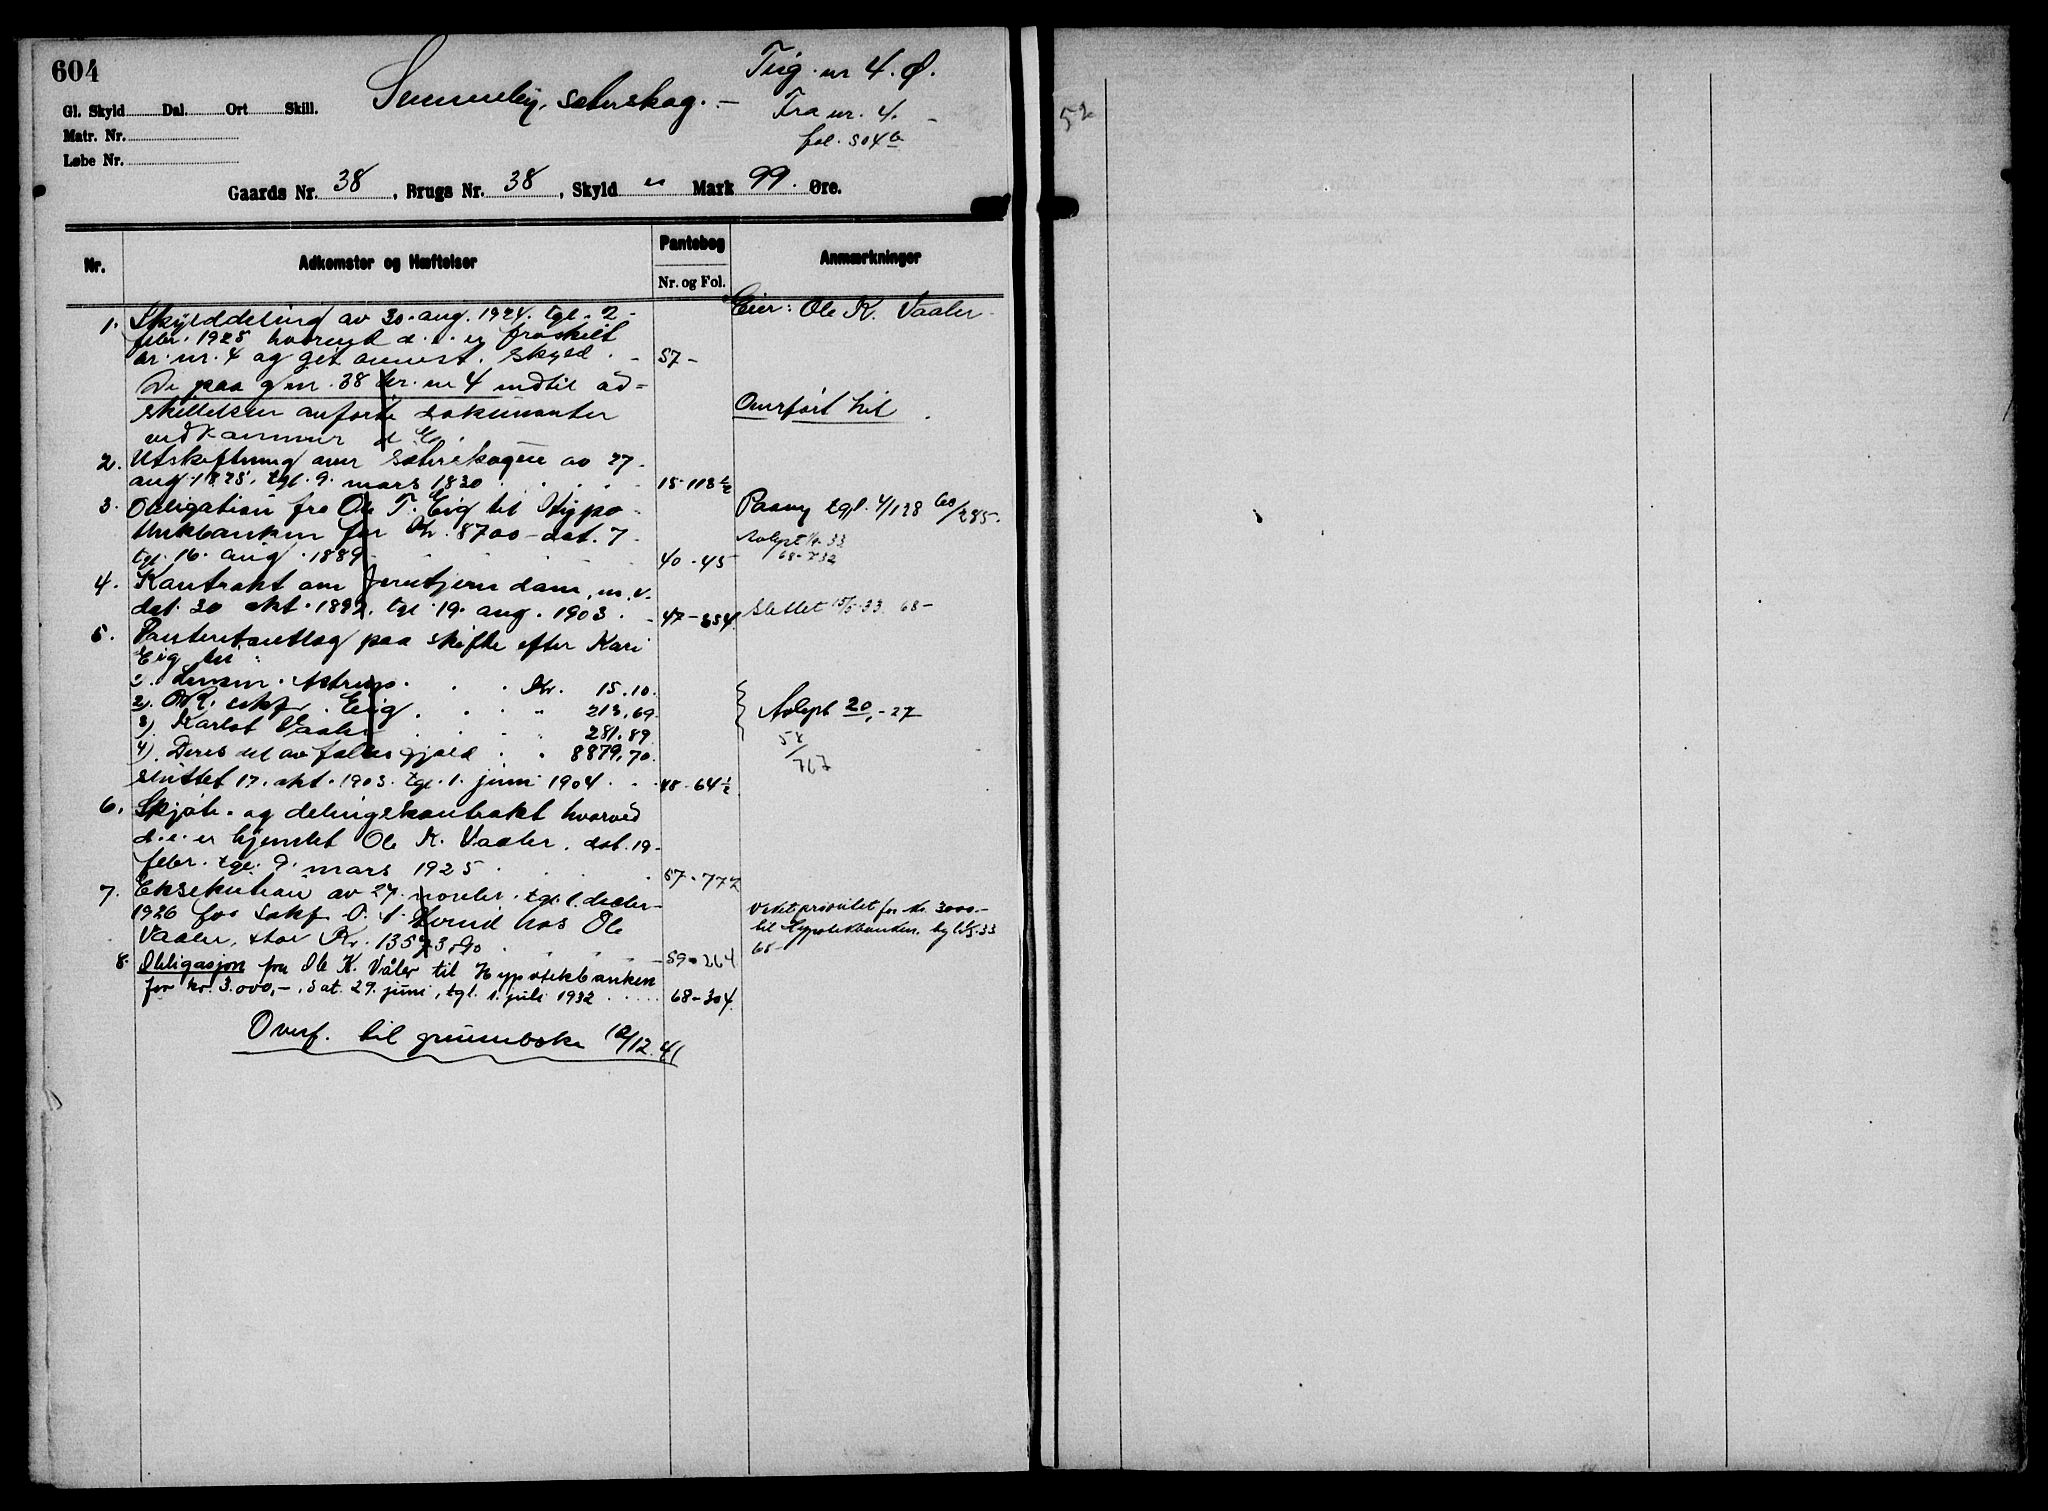 604
Teig nr 4. Ø.
sæterskog. –
Gl. Skyld Dal. Ort Skill.
Fra nr. 4.
Matr. Nr.
fol. 504 b
Løbe Nr.
Gaards Nr. 38, Brugs Nr. 38, Skyld " Mark 99. Øre.
Nr. Adkomster og Hæftelser Pantebog Anmærkninger
Nr. og Fol.
1. Skylddeling av 30. aug. 1924. tgl. 2 Eier: Ole K. Vaaler
febr. 1925 hvorved d. e. er fraskilt
br. nr. 4 og git anvist skyld. 57 –
De paa gnr. 38 br. nr 4 indtil ad-
skillelsen anførte dokumenter Overført hit
vedkommer d. e.
2. Utskiftning over sæterskogen av 27
aug. 1828, tgl. 9. mars 1830 15-113 ½
3. Obligation fra Ole T. Eig til Hypo- Paany tgl. 4/1 28 60/285.
thekbanken for Kr. 8700 – dat. 7
tgl. 16. aug. 1889 40-45
4. Kontrakt om dam, m. v.
dat. 30 okt. 1892, tgl. 19. aug. 1903. 47-354. Slettet 15/5-33. 68-
5. Panteretsutlæg paa skifte efter Kari
Eig til
1). Astrup. Kr. 15.10.
2). Eig " 213,69.
3). Karlot Vaaler " 281,89
4). Deres del av fælles gjæld " 8879,70.
Avlyst 20/1-27
58/767
sluttet 17. okt. 1903. tgl. 1. juni 1904. 48-64 ½
6. Skjøte- og delingskontrakt hvorved
d. e. er hjemlet Ole K. Vaaler. dat. 19
febr. tgl. 9. mars 1925 57-772
7. Eksekution av 27. novbr. tgl. 1. decbr.
1926 for sakf. O. A. hos Ole
Vaaler, stor Kr. 59-264
Veket prioritet for kr. 3000.–
til Hypotekbanken.
68-
8. Obligasjon fra Ole K. Våler til Hypotekbanken
for kr. 3.000,–, dat. 29. juni, tgl. 1. juli 1932 68-304.
Overf. til grunnboka 10/12.41
52